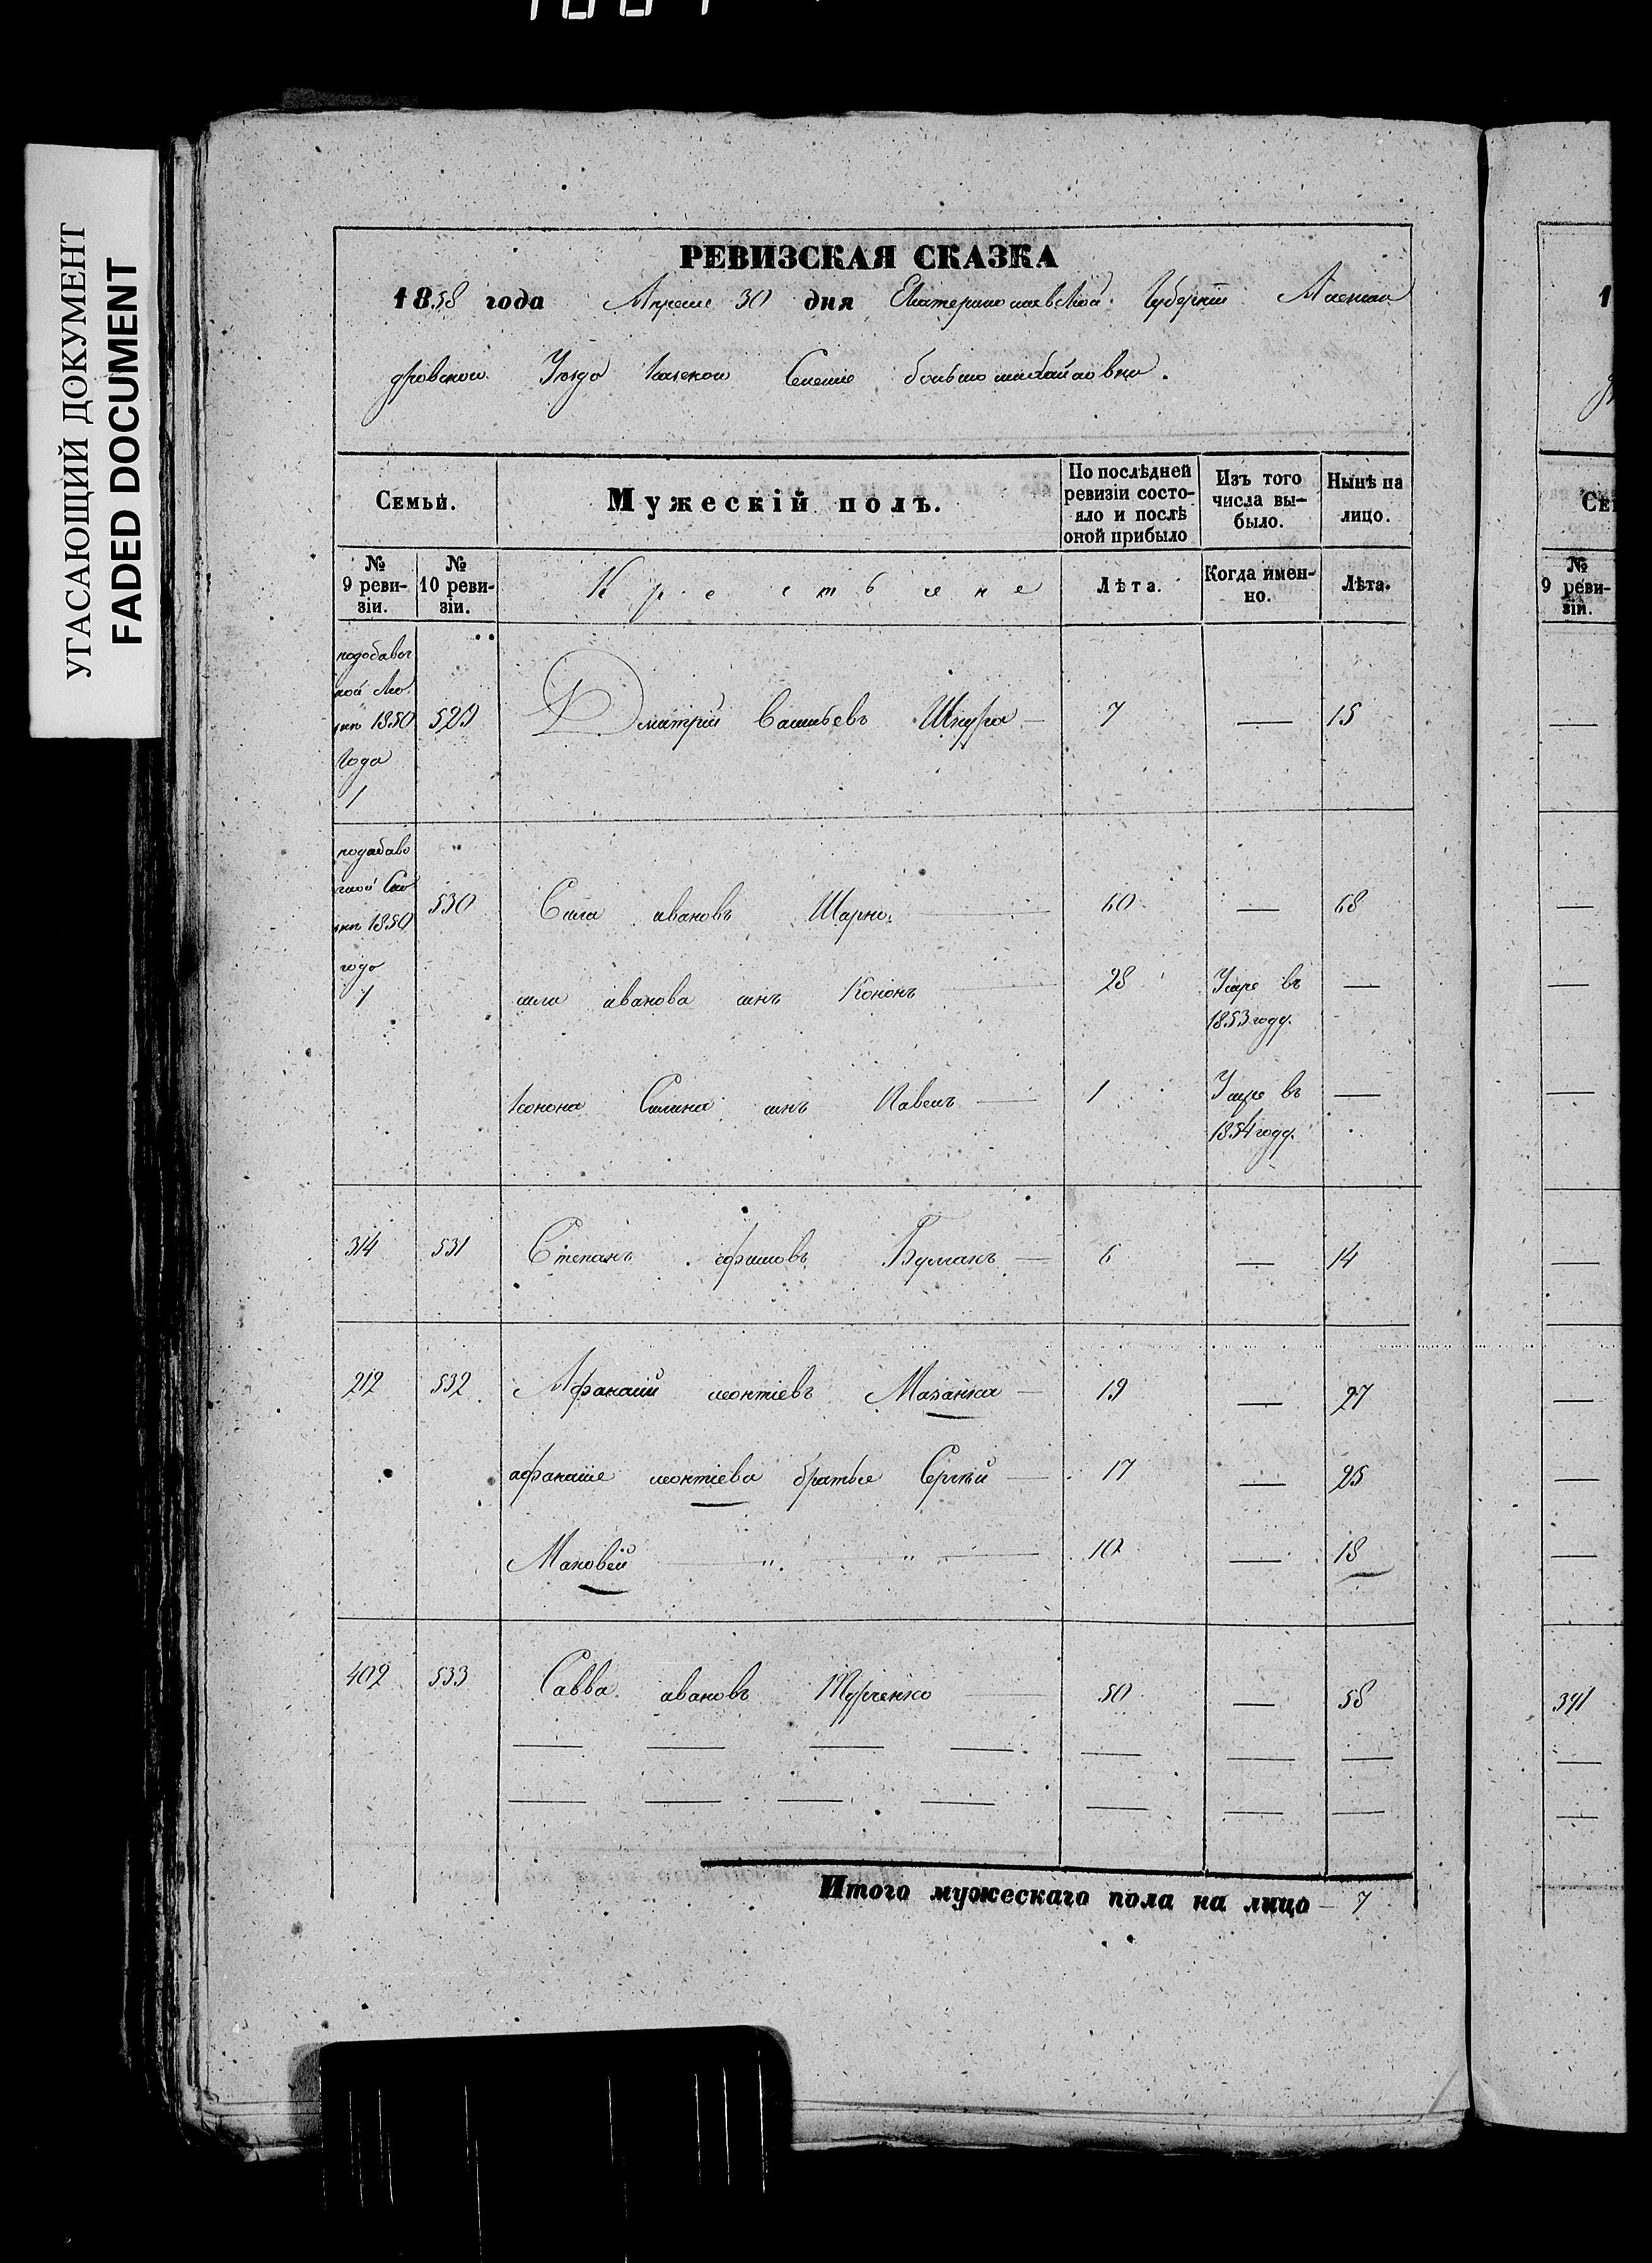 УГАСАЮЩИЙ ДОКУМЕНТ
FADED DOCUMENT
РЕВИЗСКАЯ СКАЗКА
1858 года Апреля 30 дня Екатеринославской Губерніи Алексан
дровскои Уѣзда казенои Селение большо михайловки.
Семьи.
Мужескій полъ.
По послѣдней ревизіи состояло и послѣ оной прибыло
Изъ того числа выбыло.
Нынѣ на лицо.
№ 9 ревизіи.
№ 10 ревизіи.
Крестьяне
Лѣта.
Когда именно.
Лѣта.
подобавоч
ной
1850 529 Дмитрій Васильевъ Шкура 7 — 15
года
1
подабаво
чной
1850 530 Сила ивановъ 60 — 68
года
1 сила иванова синъ Кононъ 28 Умре въ —
1853 году.
конона Силина синъ Павелъ 1 Умре въ —
1854 году.
314 531 Степанъ ефимовъ 6 — 14
212 532 Афанасий леонтіевъ Мазанка 19 — 27
афанасие леонтіева братье Сергѣй 17 — 25
Маковей „ „ 10 — 18
402 533 Савва ивановъ 50 — 58
Итого мужескаго пола на лицо — 7
№ 9 ревизіи.
391